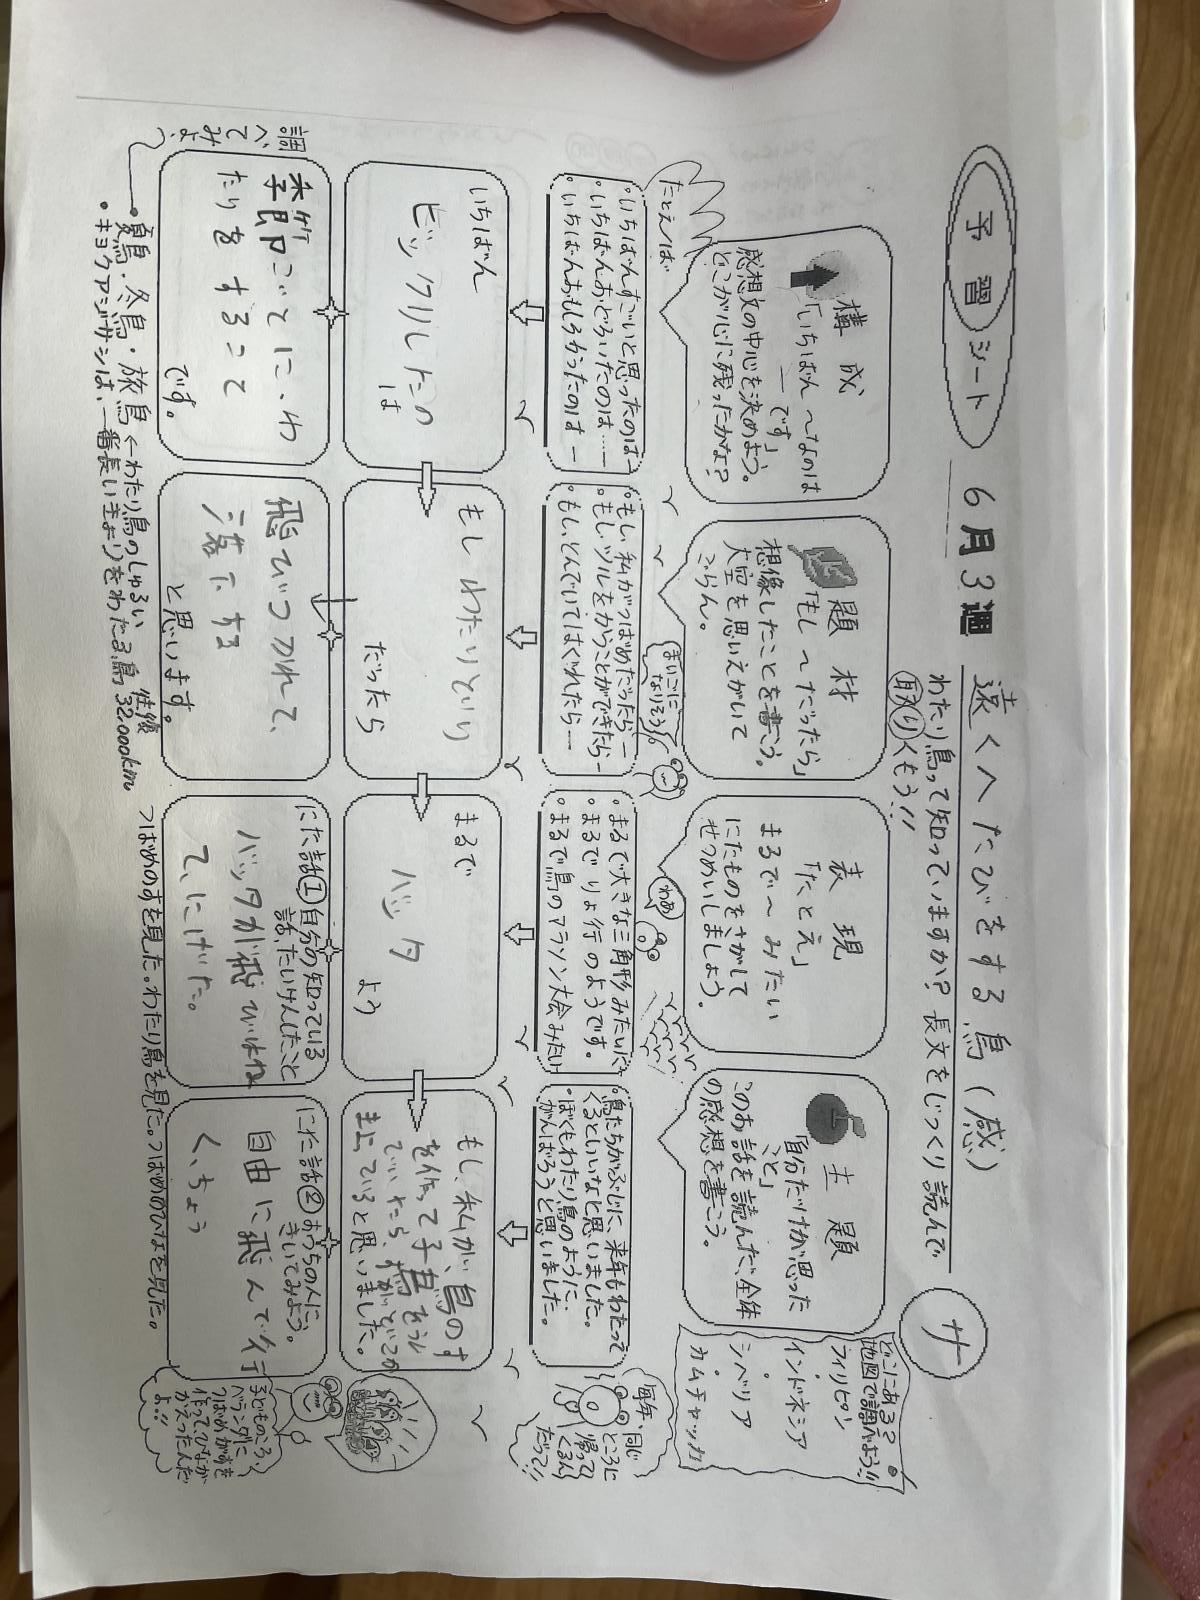 予習シート
6月3週
遠くへたびをする鳥(感)
サ
わたり鳥って知っていますか?長文をじっくり読んで
取りくもう!!
構成
「いちばん〜なのは
―です」
感想文の中心を決めよう。
どこが心に残ったかな?
題材
「もし〜だったら」
想像したことを書こう。
大空を思いえがいて
ごらん。
表現
「たとえ」
まるで〜みたい
にたものをさがして
せつめいしましょう。
主題
「自分だけが思った
こと」
このお話を読んだ、全体
の感想を書こう。
どこにある?
地図で調べよう!!
・フィリピン
・インドネシア
・シベリア
・カムチャッカ
たとえば
まいごに
なりそう
わあ
・いちばんすごいと思ったのは―
・いちばんおどろいたのは……
・いちばんおもしろかったのは―
・もし、私がつばめだったら―
・もし、ツルをかうことができたら―
・もし、とんでいてはぐれたら―
・まるで大きな三角形みたいに
・まるでりょ行のようです。
・まるで鳥のマラソン大会みたい
・鳥たちがぶじに、来年もわたって
くるといいなと思いました。
・ぼくもわたり鳥のように…
がんばろうと思いました。
毎年同じ
ところに
帰って
くるん
だって!!
いちばん
ビックリしたの
は
もしわたりどり
だったら
まるで
バッタ
よう
もし、私が、鳥のす
を作って子
ていたら、
ていると思いました。
調べてみよ
季節ごとに、わ
たりをすること
です。
飛びつかれて、
落下する
と思います。
にた話①自分の知っている
話、たいけんしたこと
バッタが飛びはね
て、にげた。
にた話②おうちの人に、
きいてみよう。
自由に飛んで行
く、ちょう
子どものころ、
ベランダに
つばめがすを
作って、ひなが
かえったんだ
よ!!
・夏鳥・冬鳥・旅鳥←わたり鳥のしゅるい
・キョクアジサシは、一番長いきょりをわたる鳥 往復 32,000km
つばめのすを見た。わたり鳥を見た。つばめのひなを見た。